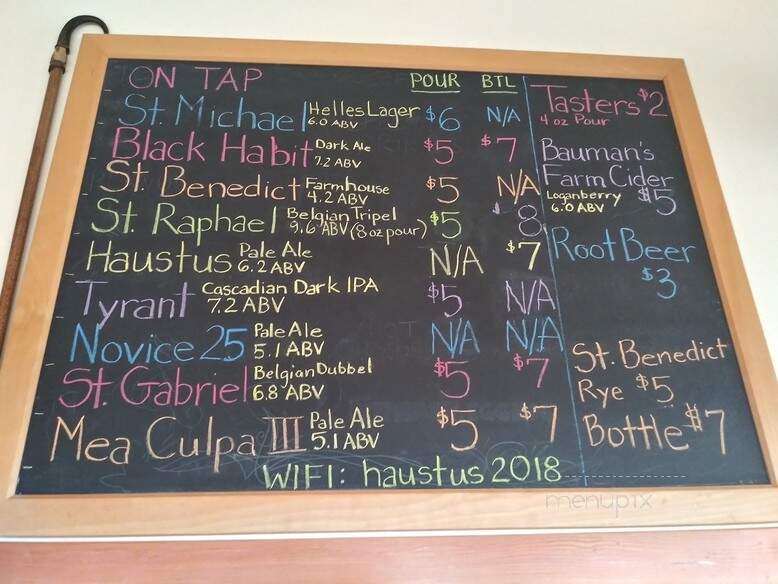 ON TAP POUR BTL
St. Michael Helles Lager 6.0 ABV $6 N/A
Black Habit Dark Ale 7.2 ABV $5 $7
St. Benedict Farmhouse 4.2 ABV $5 N/A
St. Raphael Belgian Tripel 9.6 ABV (8 oz pour) $5 $8
Haustus Pale Ale 6.2 ABV N/A $7
Tyrant Cascadian Dark IPA 7.2 ABV $5 N/A
Novice 25 Pale Ale 5.1 ABV N/A N/A
St. Gabriel Belgian Dubbel 6.8 ABV $5 $7
Mea Culpa III Pale Ale 5.1 ABV $5 $7
WIFI: haustus 2018
Tasters $2
4 oz Pour
Bauman's
Farm Cider
Loganberry
6.0 ABV $5
Root Beer
$3
St. Benedict
Rye $5
Bottle $7
menupix